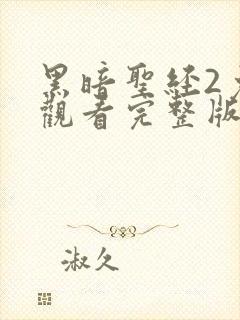 黑暗聖経2
觀看完整版
淑久